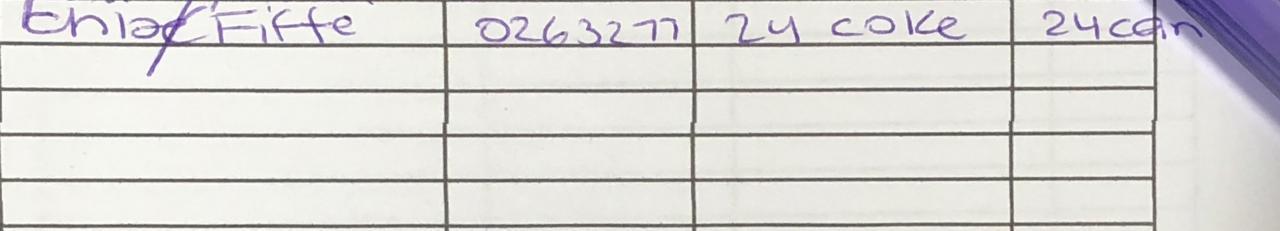 Ehlo/Fiffe 0263277 24 COKE 24can